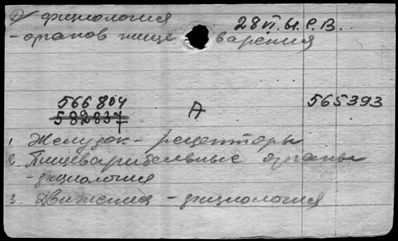 физиология 28 VI. Ы. Р. В.
- органов пище варения
566804 А 565393
582837
1. Желудок - рецепторы
2. Пищеварительные органы
- физиология
3. Движения - физиология